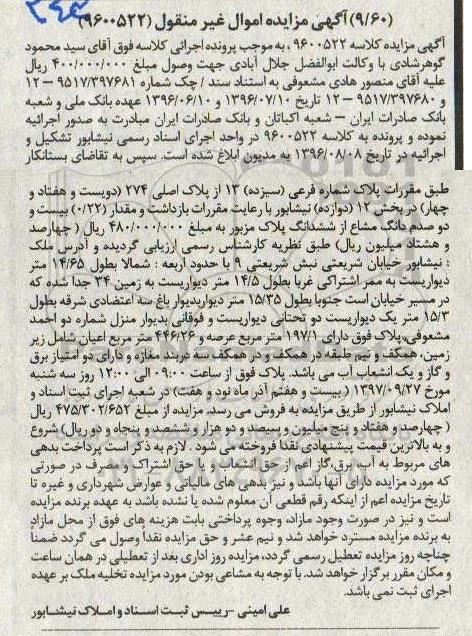 (۹/۶۰) آگهی مزایده اموال غیر منقول (۹۶۰۰۵۲۲)
آگهی مزایده کلاسه ۹۶۰۰۵۲۲ ، به موجب پرونده اجرائی کلاسه فوق آقای سید محمود
گوهرشادی با وکالت ابوالفضل جلال آبادی جهت وصول مبلغ ۴۰۰/۰۰۰/۰۰۰ ریال
علیه آقای منصور هادی مشعوفی به استناد سند / چک شماره ۹۵۱۷/۳۹۷۶۸۱ – ۱۲
و ۹۵۱۷/۳۹۷۶۸۰ – ۱۲ تاریخ ۱۳۹۶/۰۷/۱۰ و ۱۳۹۶/۰۶/۱۰ عهده بانک ملی و شعبه
بانک صادرات ایران – شعبه اکباتان و بانک صادرات ایران مبادرت به صدور اجرائیه
نموده و پرونده به کلاسه ۹۶۰۰۵۲۲ در واحد اجرای اسناد رسمی نیشابور تشکیل و
اجرائیه در تاریخ ۱۳۹۶/۰۸/۰۸ به مدیون ابلاغ شده است. سپس به تقاضای بستانکار
طبق مقررات پلاک شماره فرعی (سیزده) ۱۳ از پلاک اصلی ۲۷۴ (دویست و هفتاد و
چهار) در بخش ۱۲ (دوازده) نیشابور با رعایت مقررات بازداشت و مقدار (۰/۲۲) بیست و
دو صدم دانگ مشاع از ششدانگ پلاک مزبور به مبلغ ۴۸۰/۰۰۰/۰۰۰ ریال ( چهارصد
و هشتاد میلیون ریال) طبق نظریه کارشناس رسمی ارزیابی گردیده و آدرس ملک
: نیشابور خیابان شریعتی نبش شریعتی ۹ با حدود اربعه : شمالا بطول ۱۴/۶۵ متر
دیواریست به ممر اشتراکی غربا بطول ۱۴/۵ متر دیواریست به زمین ۳۴ جدا شده که
در مسیر خیابان است جنوبا بطول ۱۵/۳۵ متر دیواربدیوار باغ سه اعتضادی شرقه بطول
۱۵/۳ متر یک دیواریست دو تحتانی دیواریست و فوقانی بدیوار منزل شماره دو احمد
مشعوفی، پلاک فوق دارای ۱۹۷/۱ متر مربع عرصه و ۴۴۶/۲۶ متر مربع اعیان شامل زیر
زمین، همکف و نیم طبقه در همکف و در همکف سه دربند مغازه و دارای دو امتیاز برق
و گاز و یک انشعاب آب می باشد. پلاک فوق از ساعت ۰۹:۰۰ الی ۱۲:۰۰ روز سه شنبه
مورخ ۱۳۹۷/۰۹/۲۷ ( بیست و هفتم آذر ماه نود و هفت) در شعبه اجرای ثبت اسناد و
املاک نیشابور از طریق مزایده به فروش می رسد. مزایده از مبلغ ۴۷۵/۳۰۲/۶۵۲ ریال
( چهارصد و هفتاد و پنج میلیون و سیصد و دو هزار و ششصد و پنجاه و دو ریال) شروع
و به بالاترین قیمت پیشنهادی نقدا فروخته می شود . لازم به ذکر است پرداخت بدهی
های مربوط به آب ،برق،گاز اعم از حق انشعاب و یا حق اشتراک و مصرف در صورتی
که مورد مزایده دارای آنها باشد و نیز بدهی های مالیاتی و عوارض شهرداری و غیره تا
تاریخ مزایده اعم از اینکه رقم قطعی آن معلوم شده یا نشده باشد به عهده برنده مزایده
است و نیز در صورت وجود مازاد، وجوه پرداختی بابت هزینه های فوق از محل مازاد
به برنده مزایده مسترد خواهد شد و نیم عشر و حق مزایده نقدا وصول می گردد ضمنا
چناچه روز مزایده تعطیل رسمی گردد، مزایده روز اداری بعد از تعطیلی در همان ساعت
و مکان مقرر برگزار خواهد شد. با توجه به مشاعی بودن مورد مزایده تخلیه ملک بر عهده
اجرای ثبت نمی باشد.
علی امینی -رییس ثبت اسناد و املاک نیشابور